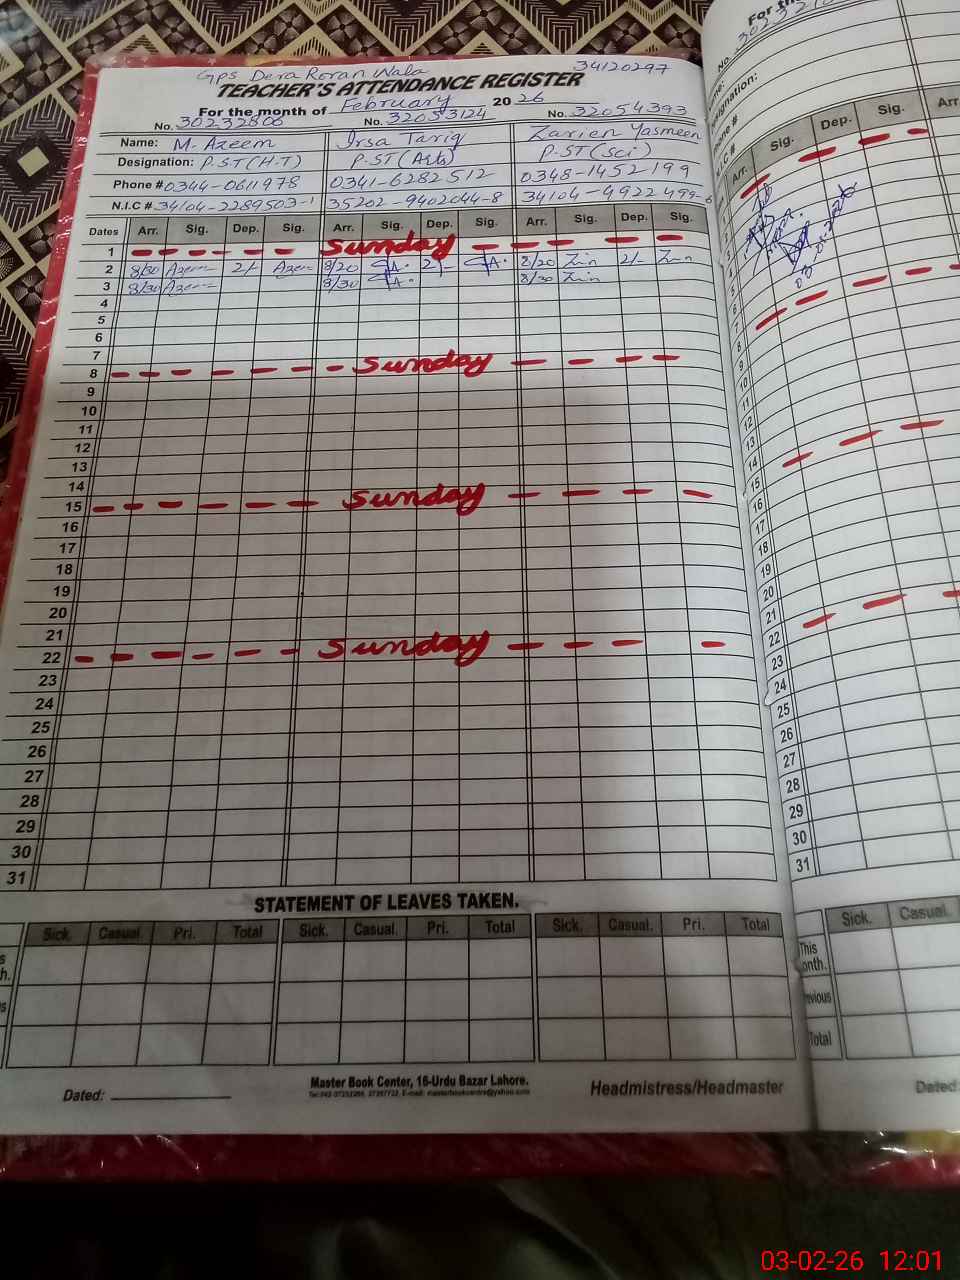 GPS Dera Roran Wala 34120297
TEACHER'S ATTENDANCE REGISTER
For the month of February 2026
No. 30232806 No. 32053124 No. 32054393
Name: M. Azeem Irsa Tariq Zarien Yasmeen
Designation: P.ST(H.T) P.ST(Arts) P.ST(Sci)
Phone # 0344-0611978 0341-6282512 0348-1452199
N.I.C # 34104-2289503-1 35202-9402044-8 34104-4922499-6
Dates Arr. Sig. Dep. Sig. Arr. Sig. Dep. Sig. Arr. Sig. Dep. Sig.
1 Sunday
2 8/30 Azeem 2/- Azeem 8/20 2/- 8/20 2/-
3 8/30 Azeem 8/30 8/30
4
5
6
7
8 Sunday
9
10
11
12
13
14
15 Sunday
16
17
18
19
20
21
22 Sunday
23
24
25
26
27
28
29
30
31
STATEMENT OF LEAVES TAKEN.
Sick. Casual. Pri. Total Sick. Casual. Pri. Total Sick. Casual. Pri. Total
Dated:
Master Book Center, 16-Urdu Bazar Lahore.
Headmistress/Headmaster
No.
Phone #
N.I.C #
Arr. Sig. Dep. Sig. Arr.
6
7
8
9
10
11
12
13
14
15
16
17
18
19
20
21
22
23
24
25
26
27
28
29
30
31
Sick. Casual.
This
Total
Dated:
03-02-26 12:01